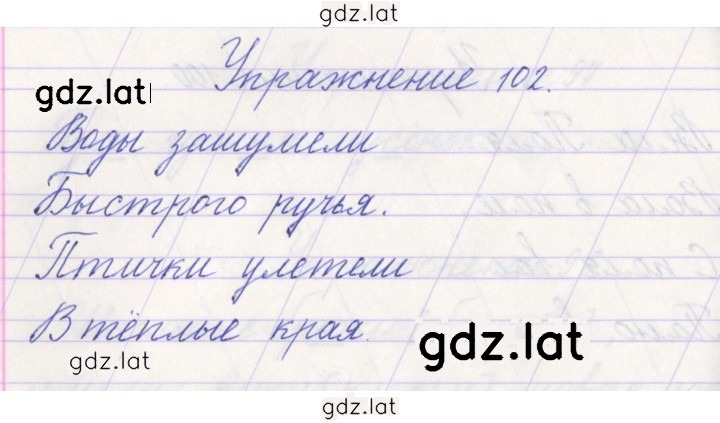 gdz.lat
Упражнение 102.
gdz.lat
Воды зашумели
Быстрого ручья.
Птички улетели
В тёплые края.
gdz.lat
gdz.lat
gdz.lat